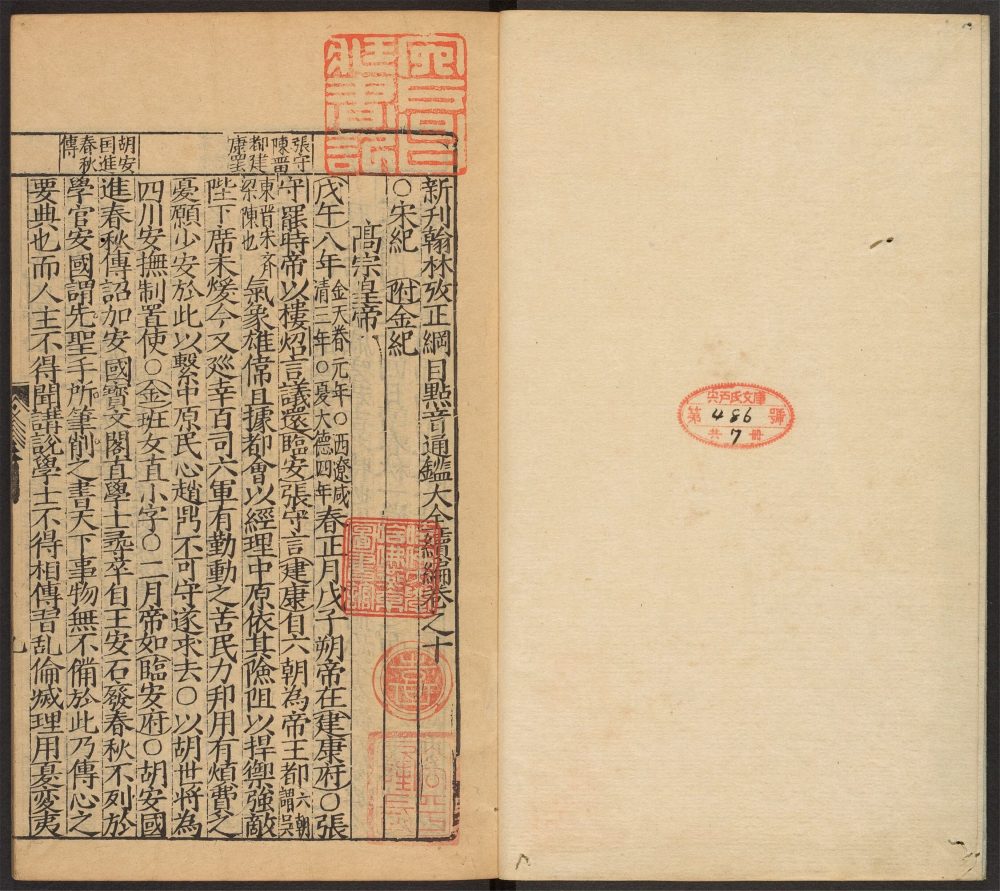 宍戸氏文庫
第 486 號
共 7 冊
新刊翰林攷正綱目點音通鑑大全續編卷之十
○宋紀 附金紀
高宗皇帝
戊午八年金天眷元年○西遼咸清三年○夏大德四年春正月戊子朔帝在建康府○張
守罷時帝以樓炤言議還臨安張守言建康自六朝為帝王都六朝謂吳
東晋宋齊梁陳也氣象雄偉且據都會以經理中原依其險阻以捍禦強敵
陛下席未煖今又廵幸百司六軍有勤動之苦民力邦用有煩費之
憂願少安於此以繫中原民心趙鼎不可守遂求去○以胡世將為
四川安撫制置使○金班女直小字○二月帝如臨安府○胡安國
進春秋傳詔加安國寶文閣直學士尋卒自王安石發春秋不列於
學官安國謂先聖手所筆削之書天下事物無不備於此乃傳心之
要典也而人主不得聞講說學士不得相傳習乱倫滅理用夏変夷
張守
陳晋
都建
康罷
胡安
国進
春秋
傳